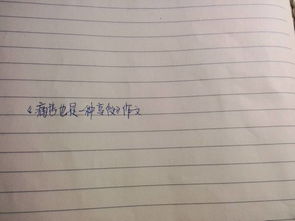 《痛苦也是一种享受》作文